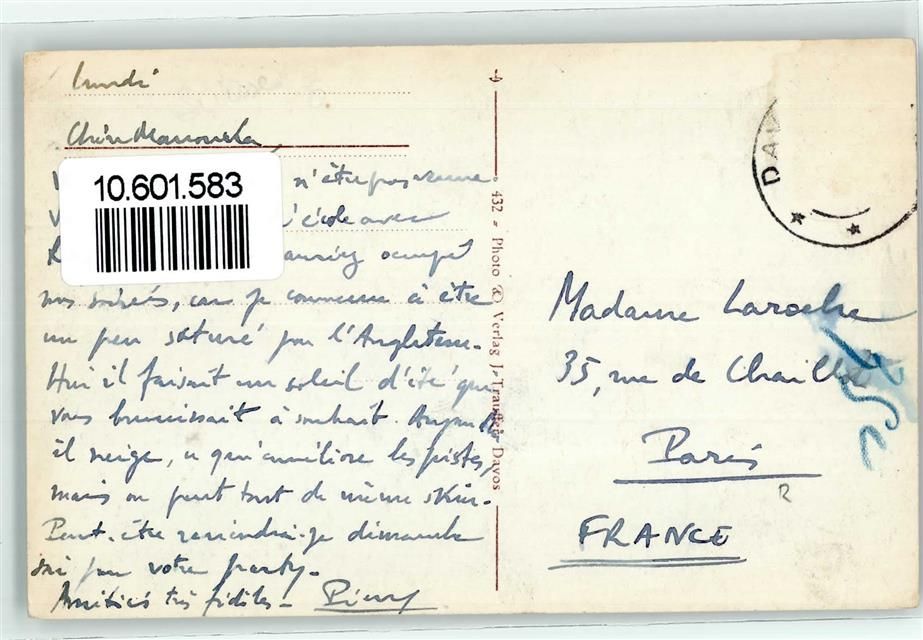 lundi
Chère Manouska,
10.601.583
n'être pas venue
l'école avec
auriez occupé
nos soirées, car je commence à être
un peu saturé par l'Angleterre.
Hui il faisait un soleil d'été qui
vous brunissait à souhait.
il neige, ce qui améliore les pistes,
mais on peut tout de même skier.
Peut-être reviendrai-je dimanche
soir pour votre party.
Amitiés très fidèles - Pierre
432 - Photo © Verlag J. Trauffer, Davos
DAV
Madame Laroche
35, rue de Chaillot
Paris
R
FRANCE